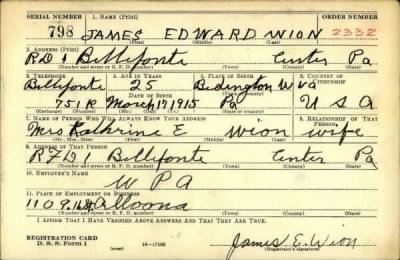 SERIAL NUMBER 1. NAME (Print) ORDER NUMBER
798 JAMES EDWARD WION 2332
(First) (Middle) (Last)
2. ADDRESS (Print)
RD 1 Bellefonte Center Pa
(Number and street or R. F. D. number) (Town) (County) (State)
3. TELEPHONE 4. AGE IN YEARS 5. PLACE OF BIRTH 6. COUNTRY OF CITIZENSHIP
Bellefonte 25 Bedington W va
DATE OF BIRTH
751R March 17 1915 Pa U S A
(Exchange) (Number) (Mo.) (Day) (Yr.) (State or country)
7. NAME OF PERSON WHO WILL ALWAYS KNOW YOUR ADDRESS 8. RELATIONSHIP OF THAT PERSON
Mrs Kathrine E Wion wife
(Mr., Mrs., Miss) (First) (Middle) (Last)
9. ADDRESS OF THAT PERSON
RFD 1 Bellefonte Center Pa
(Number and street or R. F. D. number) (Town) (County) (State)
10. EMPLOYER'S NAME
W P A
11. PLACE OF EMPLOYMENT OR BUSINESS
1109. 16 St Altoona
(Number and street or R. F. D. number) (Town) (County) (State)
I AFFIRM THAT I HAVE VERIFIED ABOVE ANSWERS AND THAT THEY ARE TRUE.
REGISTRATION CARD
D. S. S. Form 1
James E. Wion
(Registrant's signature)